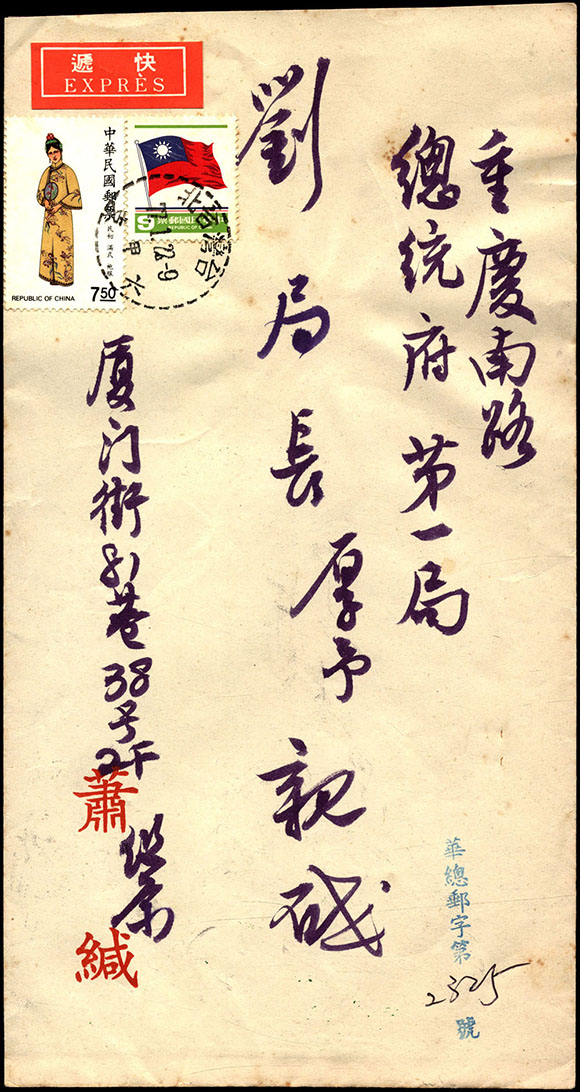 快遞
EXPRÈS
中華民國郵票
REPUBLIC OF CHINA
7.50
REPUBLIC OF CHINA
重慶南路
總統府苐一局
劉局長厚予親
厦门街81巷38号2F
蕭继宗緘
華總郵字第2325號